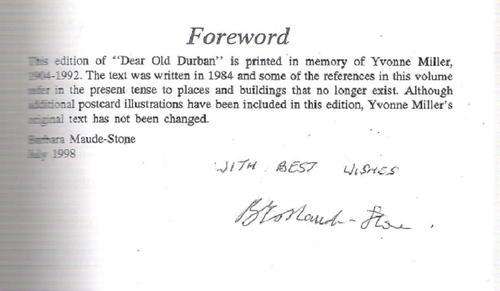 Foreword
This edition of "Dear Old Durban" is printed in memory of Yvonne Miller,
1904-1992. The text was written in 1984 and some of the references in this volume
refer in the present tense to places and buildings that no longer exist. Although
additional postcard illustrations have been included in this edition, Yvonne Miller's
original text has not been changed.
Barbara Maude-Stone
July 1998
WITH BEST WISHES
Maude-Stone